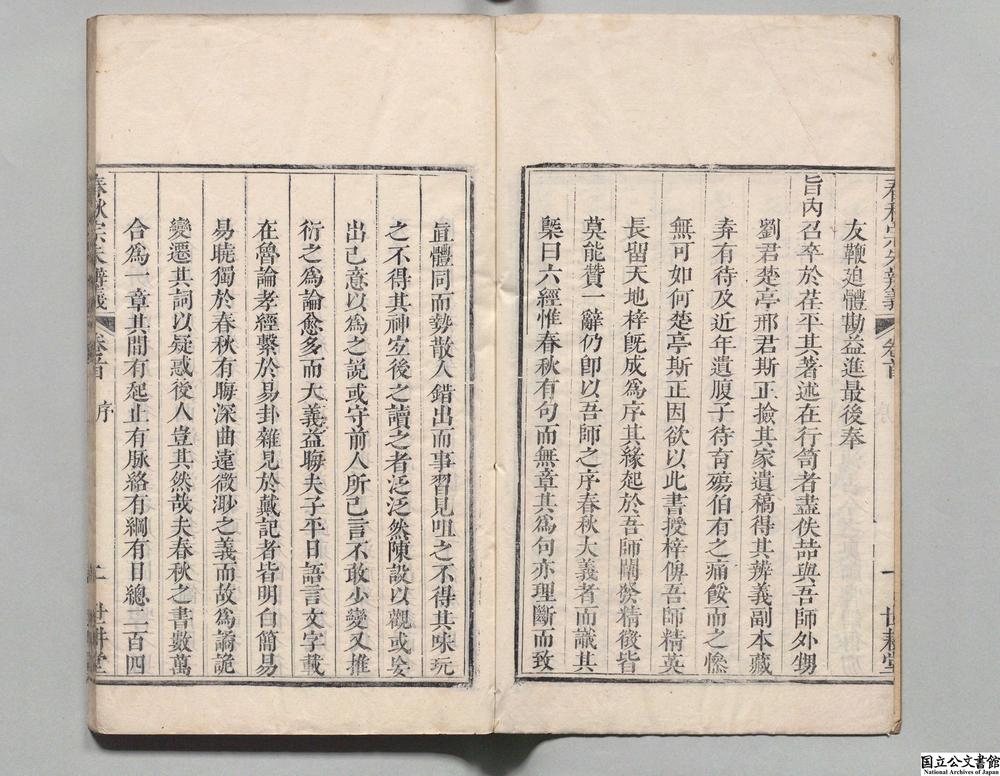 春秋宗朱辨義
卷首
一
世耕堂
友鞭迫體勘益進最後奉
旨內召卒於茌平其著述在行笥者盡佚喆與吾師外甥
劉君楚亭邢君斯正撿其家遺稿得其辨義副本藏
弆有待及近年遺腹子待育殤伯有之痛餒而之慘
無可如何楚亭斯正因欲以此書授梓俾吾師精英
長留天地梓既成為序其緣起於吾師闡發精微皆
莫能贊一辭仍即以吾師之序春秋大義者而識其
槩曰六經惟春秋有句而無章其為句亦理斷而致
直體同而勢散人錯出而事習見咀之不得其味玩
之不得其神宜後之讀之者泛泛然陳設以觀或妄
出己意以為之說或守前人所已言不敢少變又推
衍之為論愈多而大義益晦夫子平日語言文字載
在魯論孝經繫於易卦雜見於戴記者皆明白簡易
易曉獨於春秋有晦深曲遠微渺之義而故為譎詭
變遷其詞以疑惑後人豈其然哉夫春秋之書數萬
合為一章其間有起止有脉絡有綱有目總二百四
春秋宗朱辨義
卷首
序
二
世耕堂
国立公文書館
National Archives of Japan